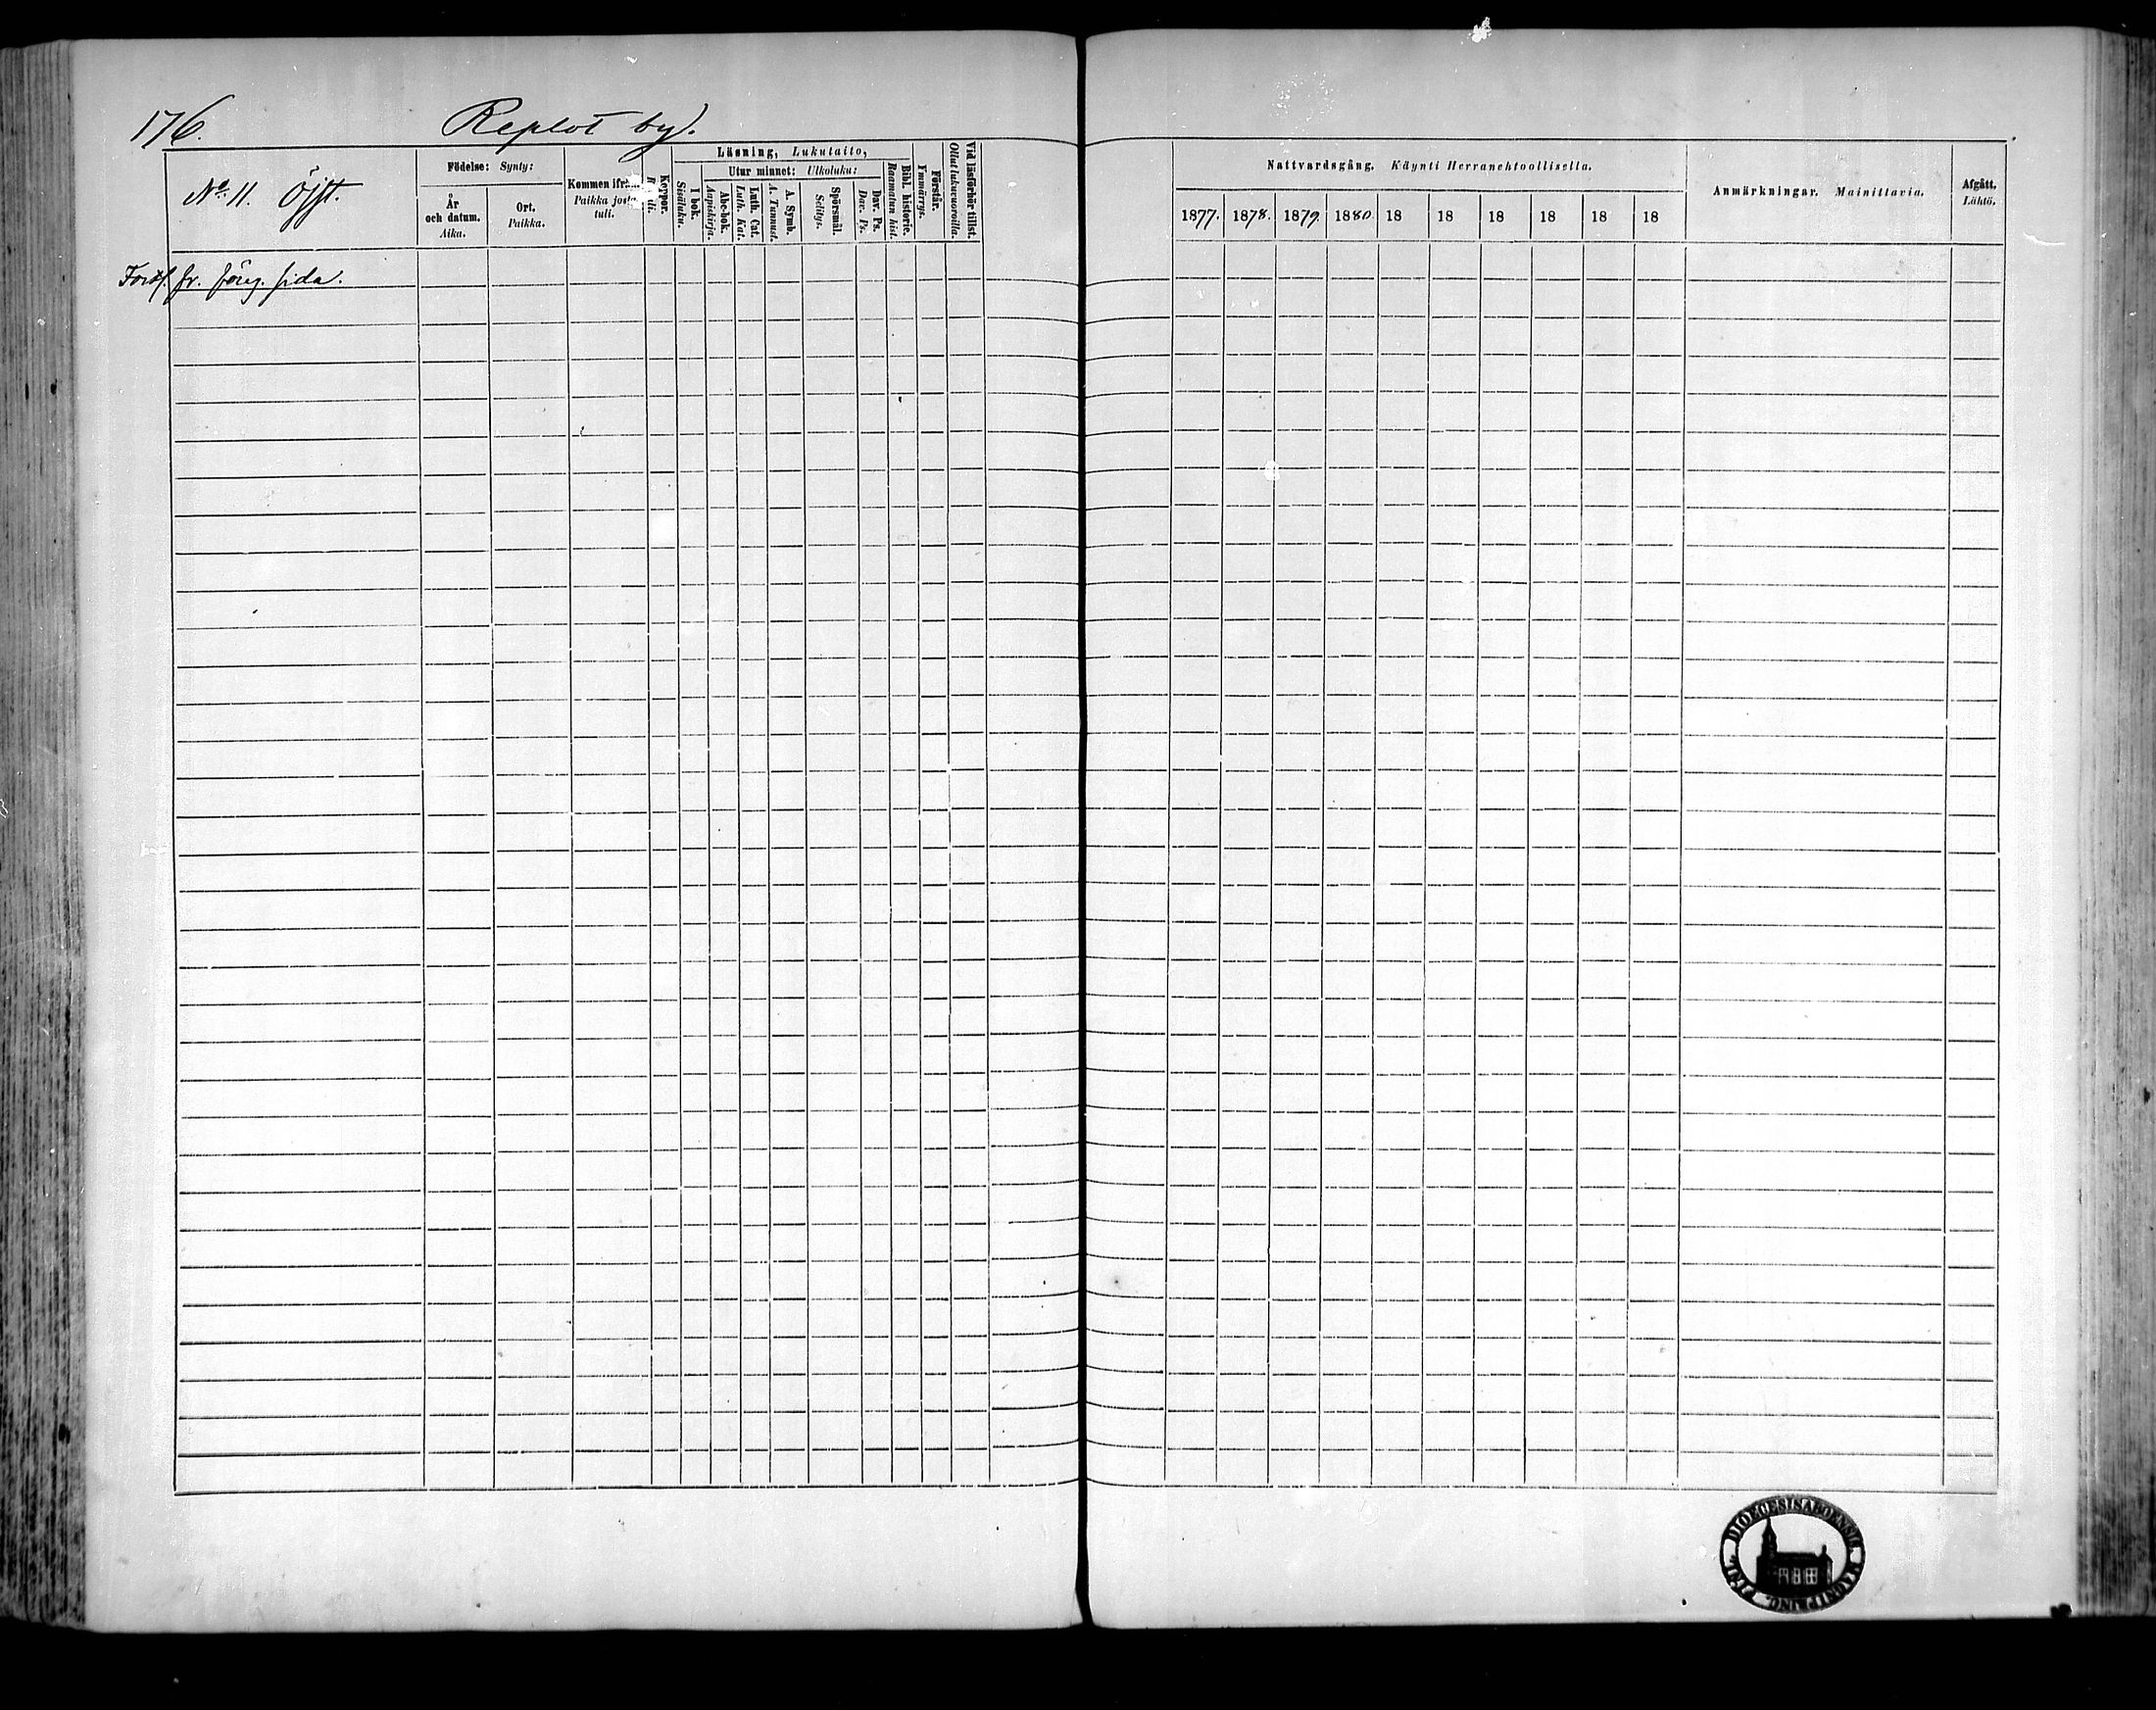 176.
Replot by.
No. 11. Öjst.
Födelse: Synty:
År och datum. Aika.
Ort. Paikka.
Kommen ifrån Paikka josta tuli.
Koppor.
Läsning, Lukutaito,
I bok. Sisäluku.
Utur minnet: Ulkoluku:
Abc-bok. Aapiskirja.
Luth. Cat. Luth. Kat.
A. Symb. A. Tunnust.
Spörsmål. Selitys.
Dav. Ps. Dav. Ps.
Bibl. historie. Raamatun hist.
Förstår. Ymmärrys.
Vid läsförhör tillst. Ollut lukuvuoroilla.
Nattvardsgång. Käynti Herranehtoollisella.
1877. 1878. 1879. 1880. 18 18 18 18 18 18
Anmärkningar. Mainittavia.
Afgått. Lähtö.
Forts. fr. föreg. sida.
DIOECESIS ABOENSIS